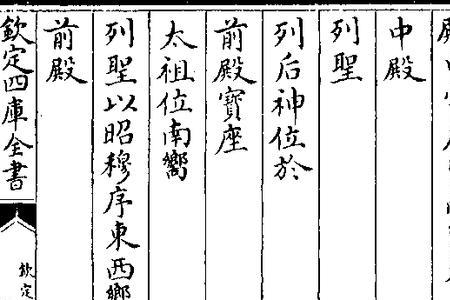 中殿
列聖
列后神位於
前殿寶座
太祖位南嚮
列聖以昭穆序東西嚮
前殿
欽定四庫全書
欽定